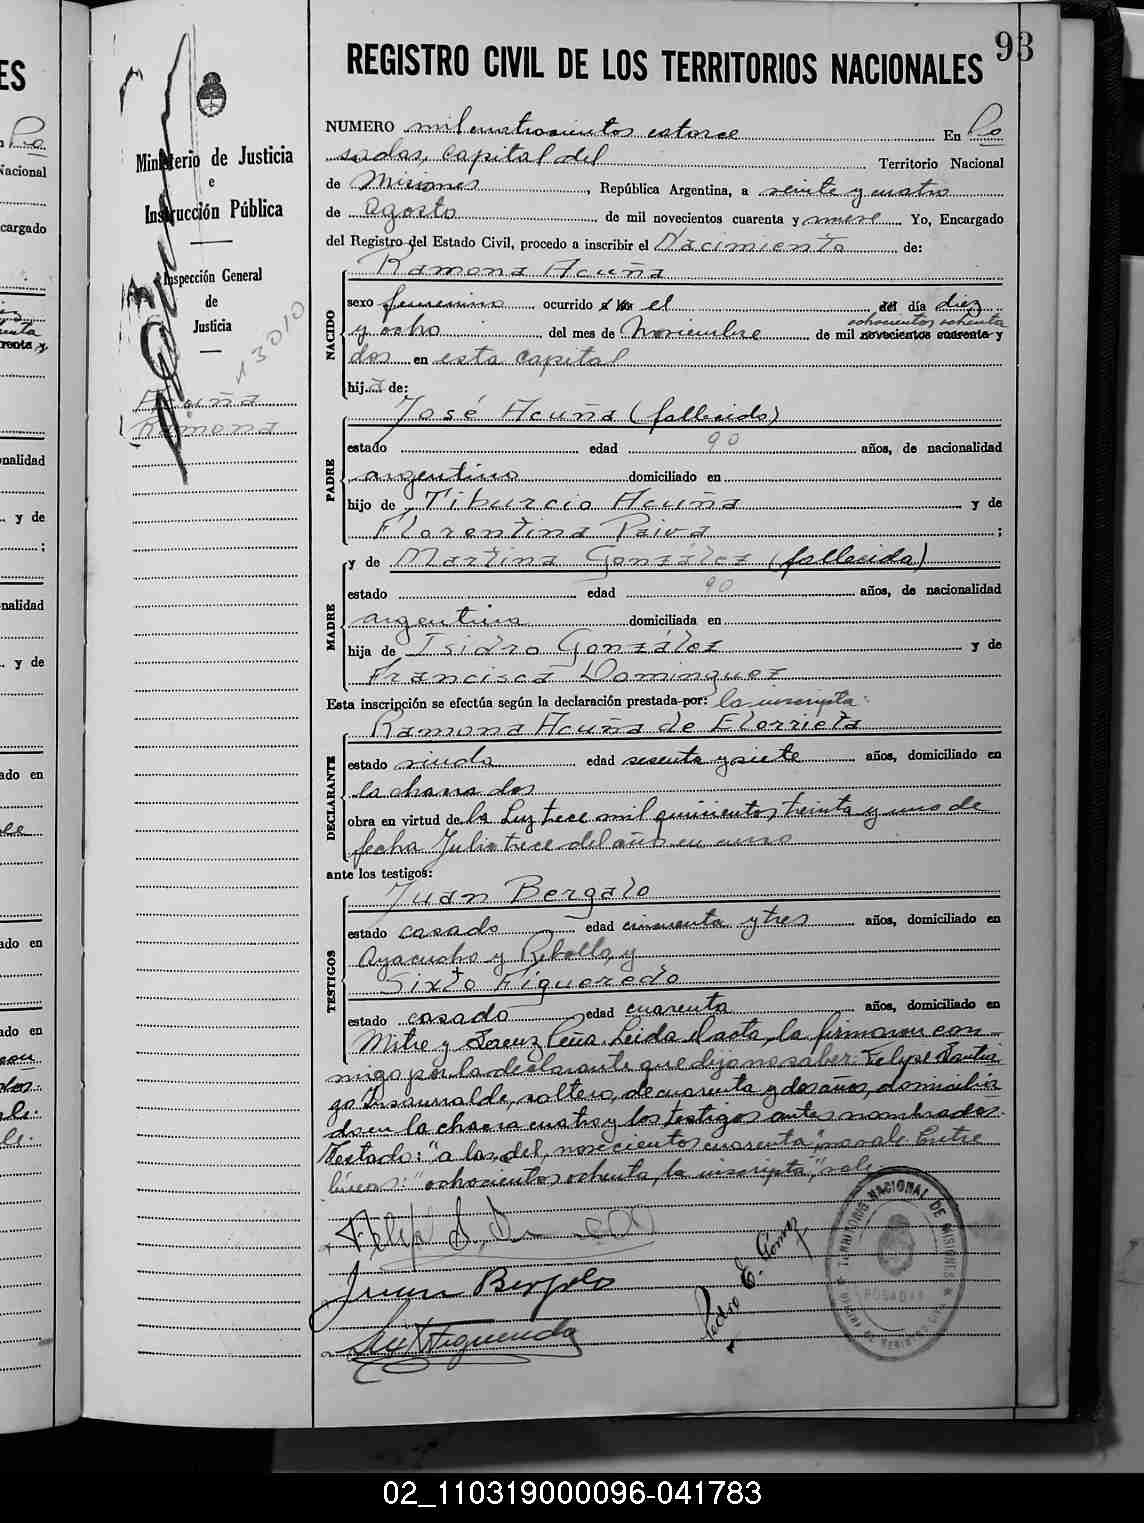 93
REGISTRO CIVIL DE LOS TERRITORIOS NACIONALES
Ministerio de Justicia
e
Instrucción Pública
Inspección General
de
Justicia
13010
Acuña
Ramona
NUMERO mil cuatrocientos catorce En Po
sadas, capital del Territorio Nacional
de Misiones, República Argentina, a veinte y cuatro
de Agosto de mil novecientos cuarenta y nueve Yo, Encargado
del Registro del Estado Civil, procedo a inscribir el Nacimiento de:
Ramona Acuña
NACIDO
sexo femenino ocurrido a las el del día diez
y ocho del mes de Noviembre de mil novecientos cuarenta y
ochocientos ochenta
dos en esta capital
hija de:
José Acuña (fallecido)
PADRE
estado edad 90 años, de nacionalidad
argentino domiciliado en
hijo de Tiburcio Acuña y de
Florentina Paiva ;
y de Martina González (fallecida)
MADRE
estado edad 90 años, de nacionalidad
argentina domiciliada en
hija de Isidro González y de
Francisca Dominguez
Esta inscripción se efectúa según la declaración prestada por: la inscripta:
Ramona Acuña de Elorrieta
DECLARANTE
estado viuda edad sesenta y siete años, domiciliado en
la chacra dos
obra en virtud de la Luz trece mil quinientos treinta y uno de
fecha Julio trece del año en curso
ante los testigos:
Juan Bergalo
TESTIGOS
estado casado edad cincuenta y tres años, domiciliado en
Ayacucho y Rebollo, y
Sixto Figueredo
estado casado edad cuarenta años, domiciliado en
Mitre y Saenz Peña. Leida el acta, la firmaron con
migo por la declarante que dijo no saber: Felipe Santia
go Insaurralde, soltero, de cuarenta y dos años, domicilia
do en la chacra cuatro y los testigos antes nombrados.
Testado: "a las, del, novecientos cuarenta", no vale. Entre
líneas: "ochocientos ochenta, la inscripta", vale.
Felipe S.
Juan Bergalo
Sixto Figueredo
Pedro E. Gómez
TERRITORIO NACIONAL DE MISIONES
POSADAS
02_110319000096-041783